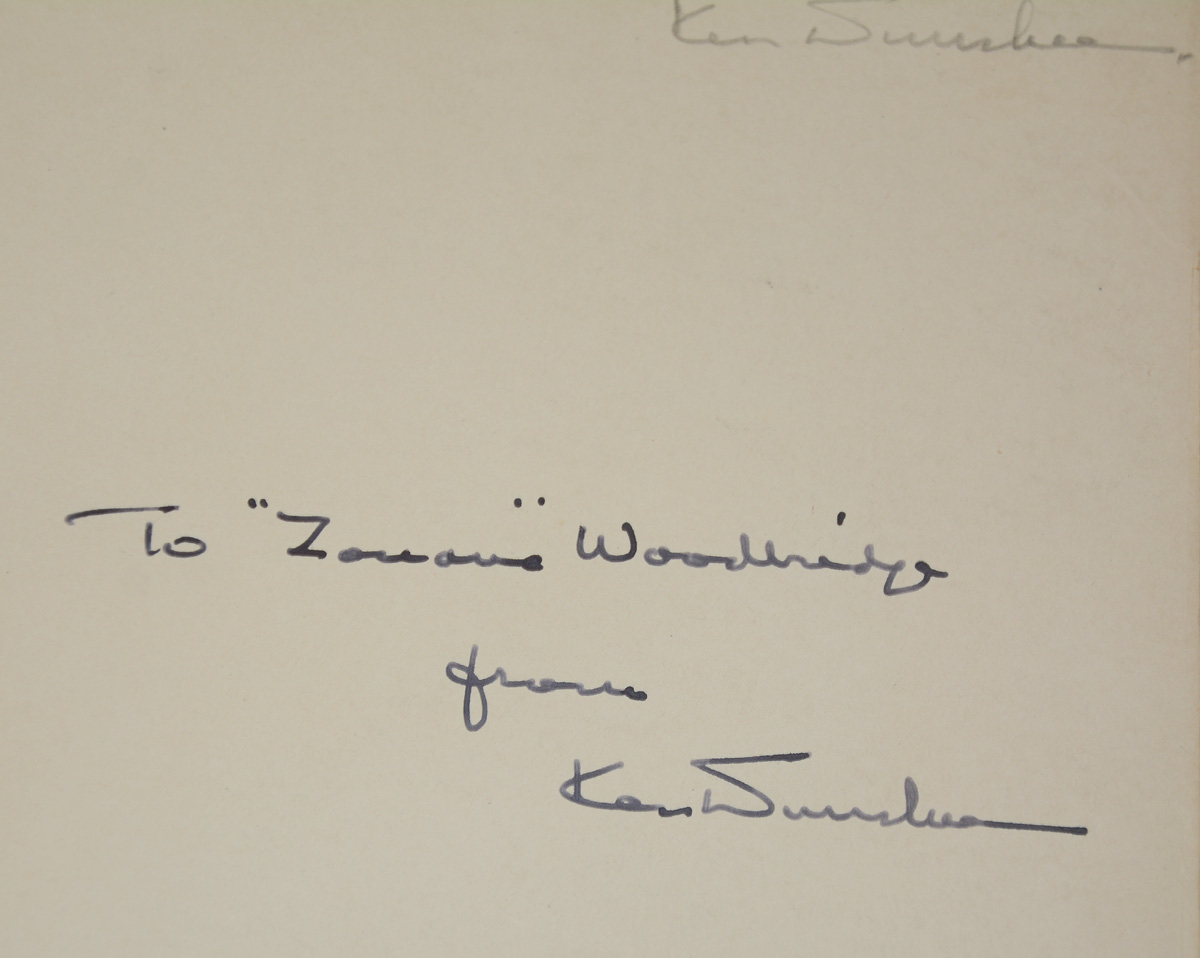 Ken Dunshee
To "Zouave" Woodbridge
from
Ken Dunshee